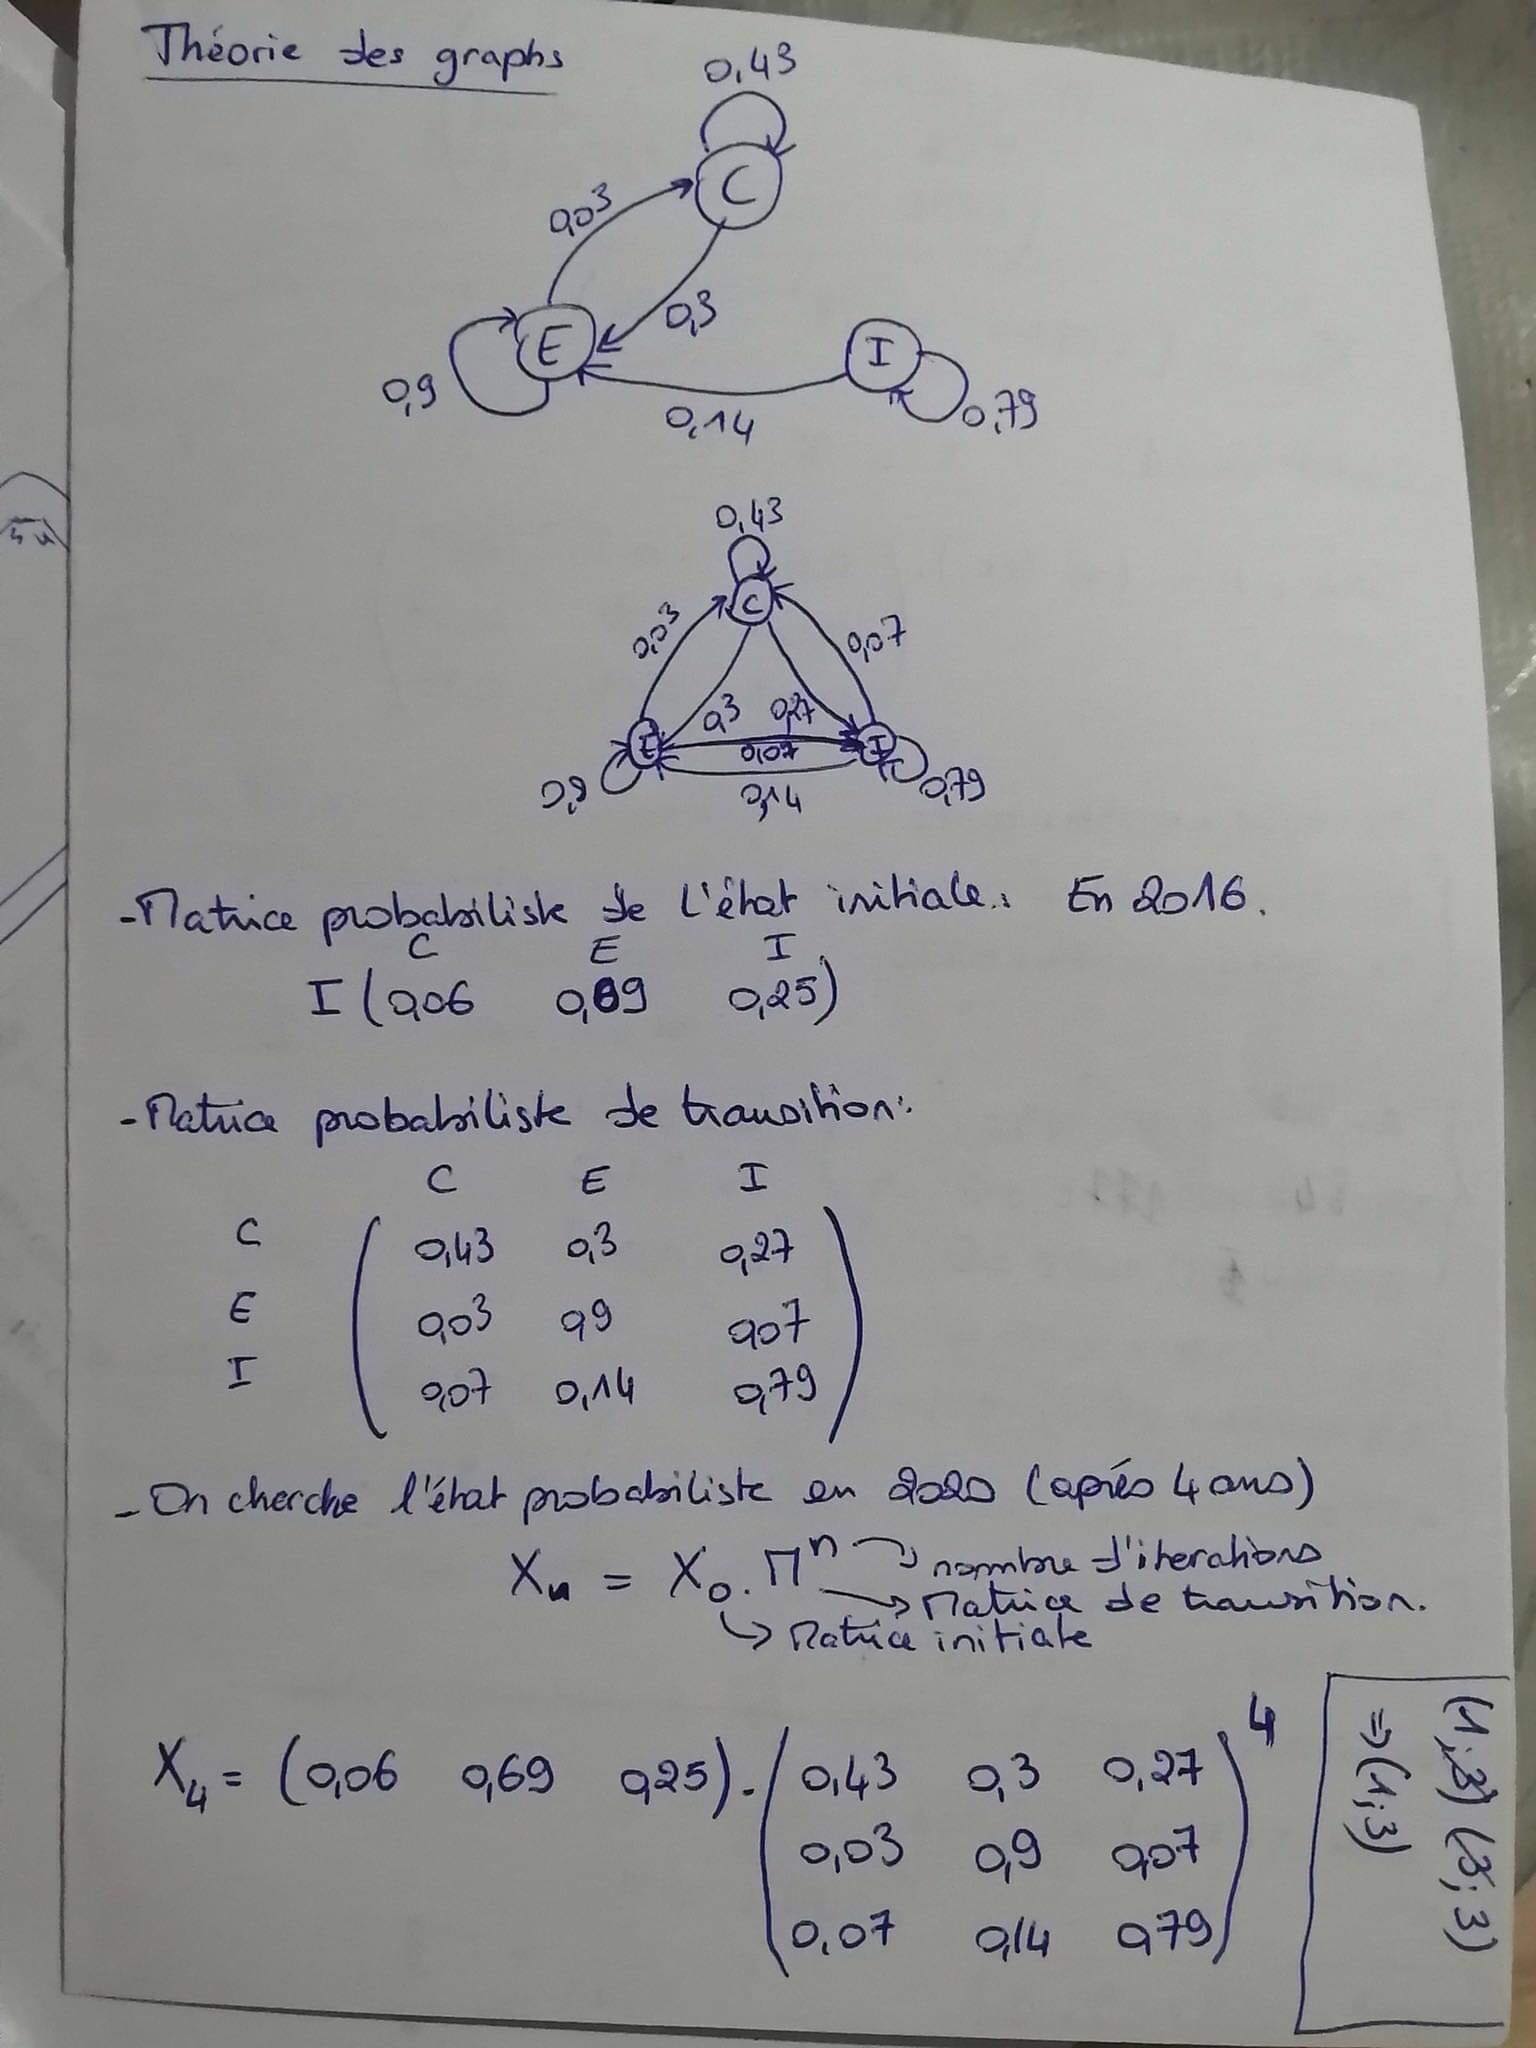 Théorie des graphs
0,43
C
0,03
0,3
E
I
0,9
0,14
0,79
0,43
C
0,03
0,07
0,3 0,27
E
0,07
I
0,9
0,14
0,79
- Matrice probabiliste de l'état initiale: En 2016.
C E I
I (0,06 0,69 0,25)
- Matrice probabiliste de transition:
C E I
C 0,43 0,3 0,27
E 0,03 0,9 0,07
I 0,07 0,14 0,79
- On cherche l'état probabiliste en 2020 (après 4 ans)
Xn = X0 . M^n → nombre d'iterations
→ Matrice de transition.
→ Matrice initiale
X4 = (0,06 0,69 0,25) . (0,43 0,3 0,27)^4
0,03 0,9 0,07
0,07 0,14 0,79
(1;3) (3;3)
⇒ (1;3)